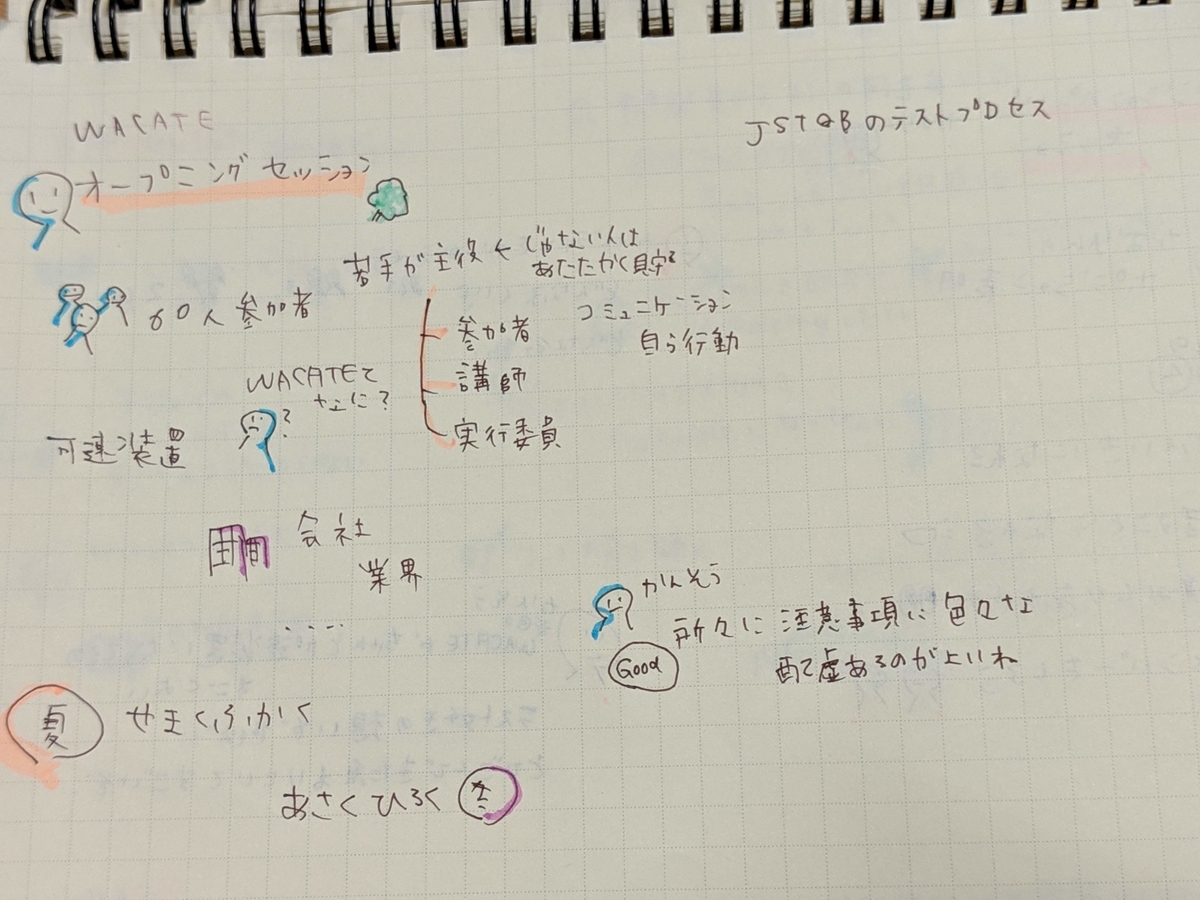 WACATE
オープニングセッション
JSTQBのテストプロセス
若手が主役 ← じゃない人は
あたたかく貝守る
60人 参加者
参加者
コミュニケーション
自ら行動
講師
実行委員
WACATEて
なに?
?
可速装置
会社
業界
....
かんそう
所々に 注意事項に 色々な
配て虚あるのがよいね
Good
夏 せまくふかく
あさくひろく 冬